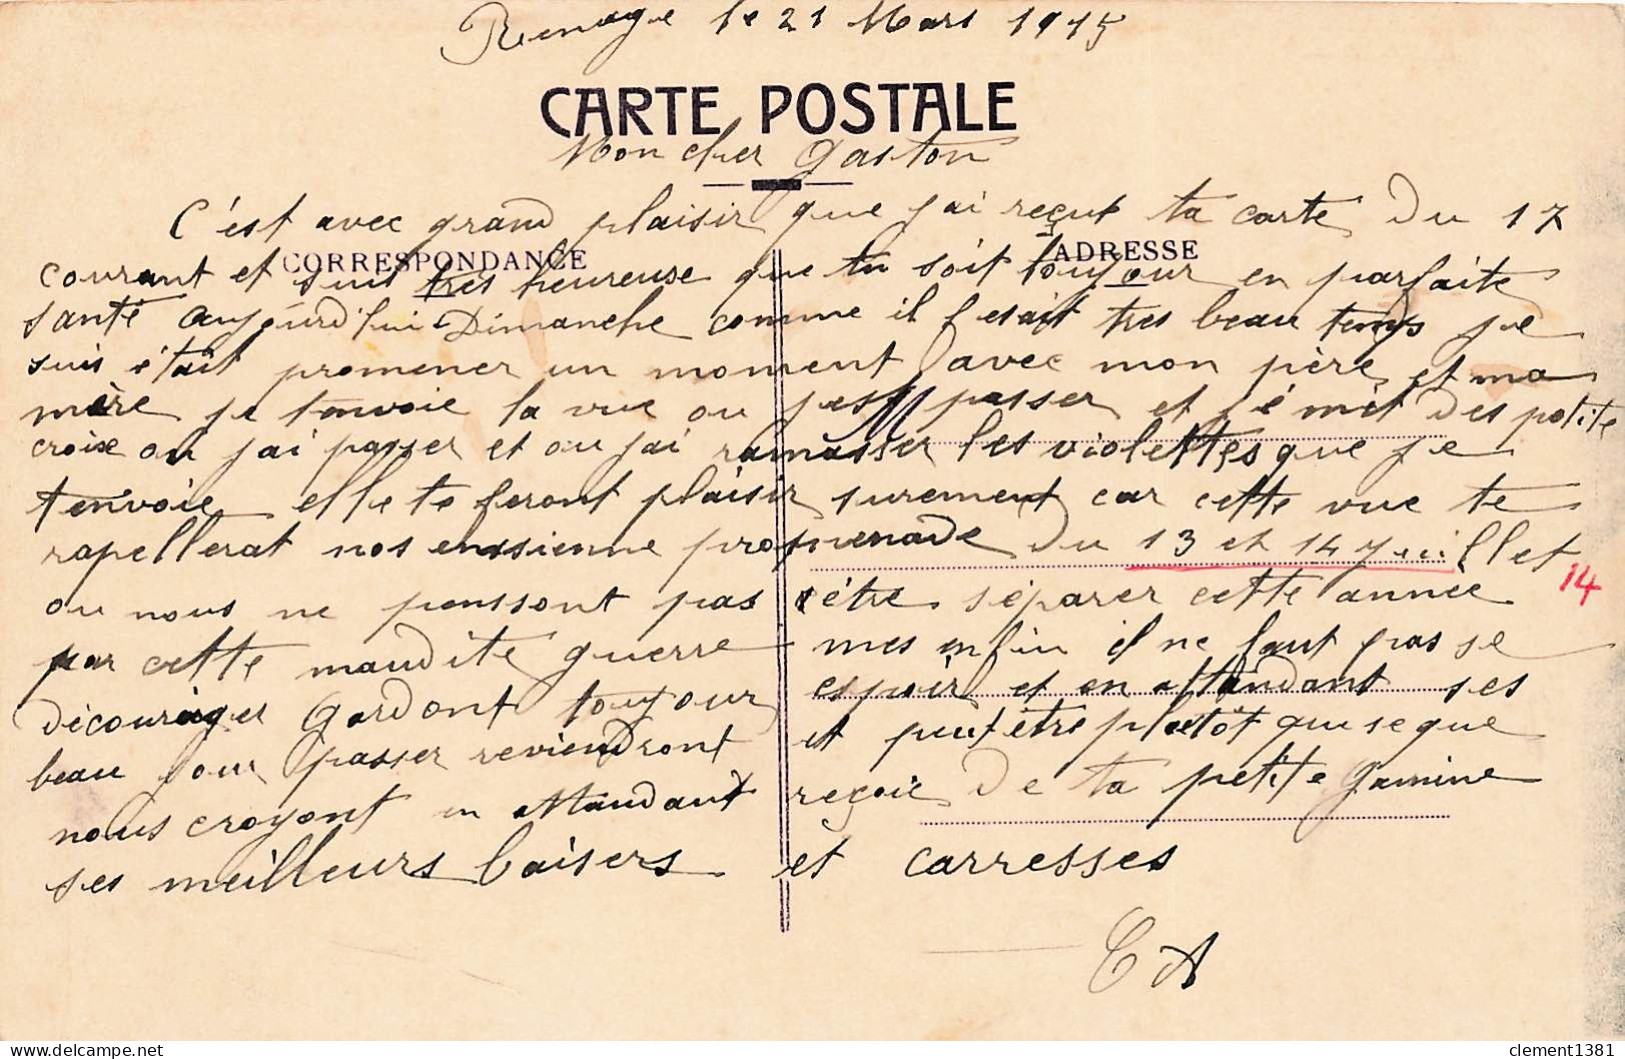 Renage le 21 Mars 1915
CARTE POSTALE
Mon cher Gaston
C'est avec grand plaisir que j'ai reçut ta carte du 17
CORRESPONDANCE
ADRESSE
courant et suis très heureuse que tu soit toujour en parfaite
santé aujourd'hui Dimanche comme il fesait très beau temps je
suis était promener un moment avec mon père et ma
mère je t'envoie la vue ou passer et j'é mit des petite
croix ou j'ai passer et ou j'ai ramasser les violettes que je
t'envoie elle te feront plaisir surement car cette vue te
rapellerat nos enssienne promenade du 13 et 14 juillet
14
ou nous ne pensont pas être séparer cette année
par cette maudite guerre mes enfin il ne faut pas se
décourager Gardont toujour espoir et en attandant ses
beau jour passer reviendront et peut être plutôt qui se que
nous croyont en attandant reçoie de ta petite Gamine
ses meilleurs baisers et carresses
C A
clement1381